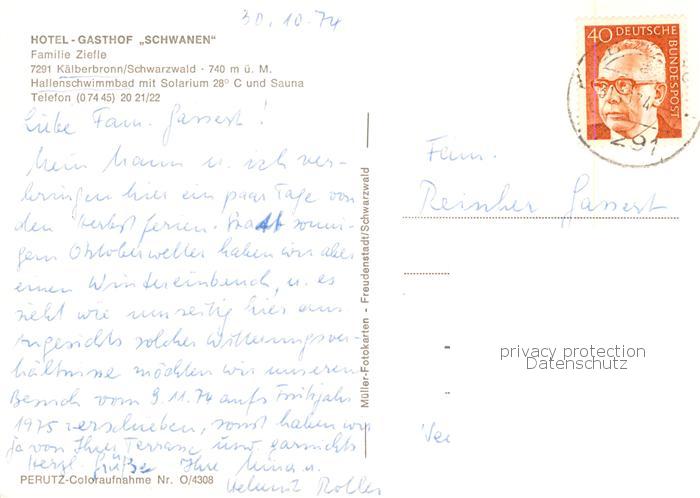 30.10.74
HOTEL-GASTHOF „SCHWANEN"
Familie Ziefle
7291 Kälberbronn/Schwarzwald · 740 m ü. M.
Hallenschwimmbad mit Solarium 28° C und Sauna
Telefon (0 74 45) 20 21/22
Liebe Fam. Gassert!
Mein Mann u. ich ver-
bringen hier ein paar Tage von
den Herbstferien. Statt sonni-
gem Oktoberwetter haben wir aber
einen Wintereinbruch, u. es
sieht wie unseitig hier aus
Angesichts solcher Witterungsver-
hältnisse möchten wir unseren
Besuch vom 9.11.74 aufs Frühjahr
1975 verschieben, sonst haben wir
ja von Ihrer Terrasse und garnichts
Herzl. Grüße Ihre u.
Helmut Roller
PERUTZ-Coloraufnahme Nr. O/4308
Müller-Fotokarten - Freudenstadt/Schwarzwald
40 DEUTSCHE
BUNDESPOST
291
Fam.
Gassert
privacy protection
Datenschutz